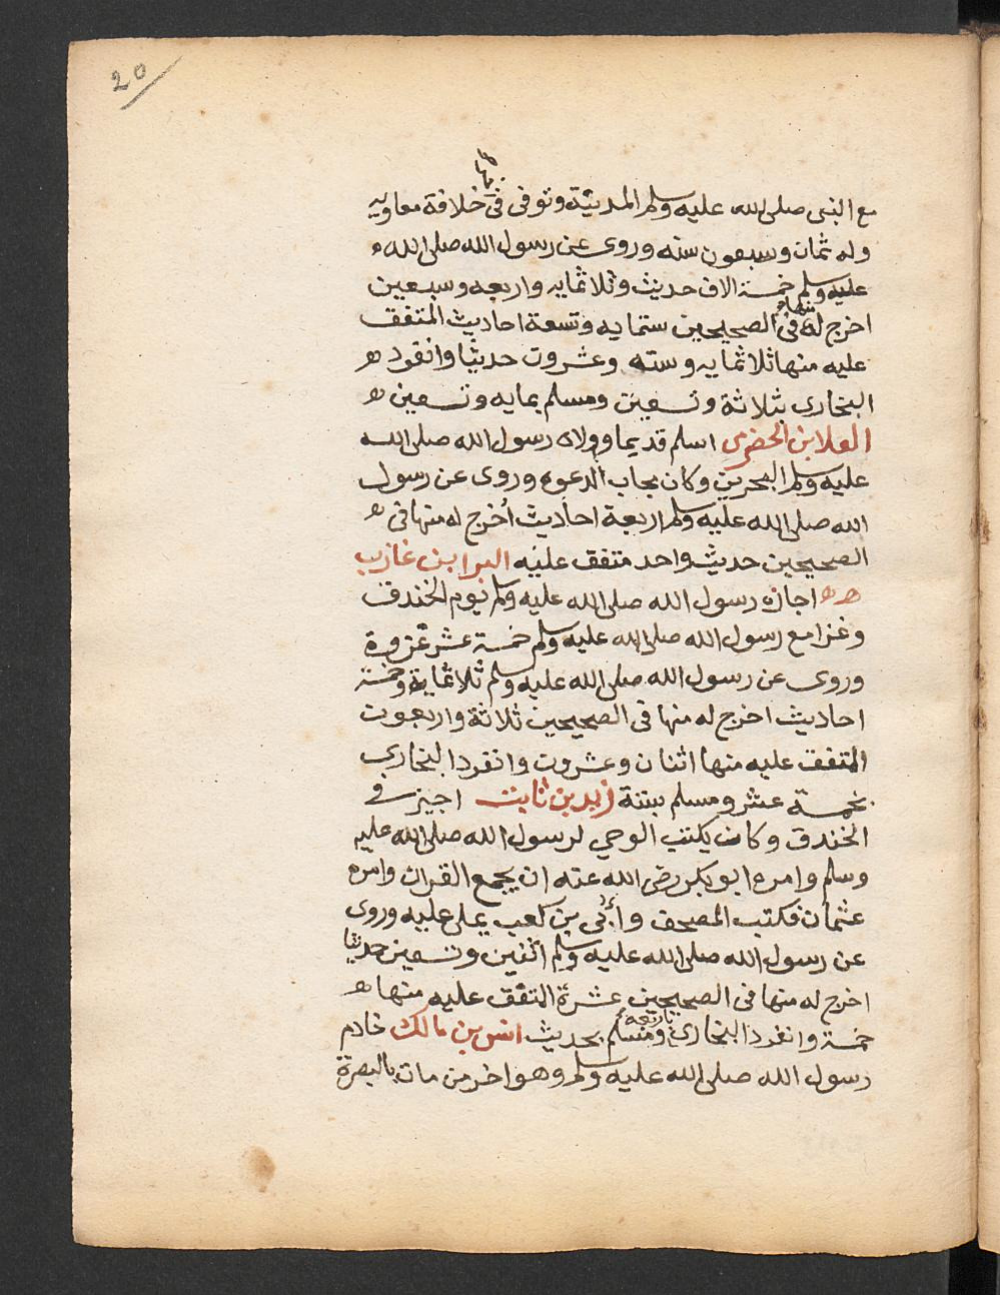 20
مع النبى صلى الله عليه وسلم المدينة وتوفى فى خلافة معاويه
وله ثمان وسبعون سنه وروى عن رسول الله صلى الله
عليه وسلم خمسة الاف حديث وثلاثمايه واربعه وسبعين
اخرج له منها فى الصحيحين ستمايه وتسعة احاديث المتفق
عليه منها ثلاثمايه وسته وعشرون حديثا وانفرد ه
البخارى بثلاثة وتسعين ومسلم بمايه وتسعين ه
العلا بن الحضرمى اسلم قديما وولاه رسول الله صلى الله
عليه وسلم البحرين وكان مجاب الدعوه وروى عن رسول
الله صلى الله عليه وسلم اربعة احاديث أخرج له منها فى ه
الصحيحين حديث واحد متفق عليه البرا بن غازب
ه ه اجازه رسول الله صلى الله عليه وسلم يوم الخندق
وغزا مع رسول الله صلى الله عليه وسلم خمسة عشر غزوة
وروى عن رسول الله صلى الله عليه وسلم ثلاثماية وخمسة
احاديث اخرج له منها فى الصحيحين ثلاثة واربعون
المتفق عليه منها اثنان وعشرون وانفرد البخارى
بخمسة عشر ومسلم بستة زيد بن ثابت اجيز فى
الخندق وكان يكتب الوحي لرسول الله صلى الله عليه
وسلم وامره ابو بكر رضى الله عنه ان يجمع القران وامره
عثمان فكتب المصحف وأبي بن كعب يملى عليه وروى
عن رسول الله صلى الله عليه وسلم اثنين وتسعين حديثا
اخرج له منها فى الصحيحين عشرة المتفق عليه منها ه
خمسة وانفرد البخارى باربعة ومسلم بحديث انس بن مالك خادم
رسول الله صلى الله عليه وسلم وهو اخر من مات بالبصرة